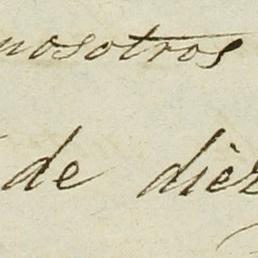 nosotros
de diez